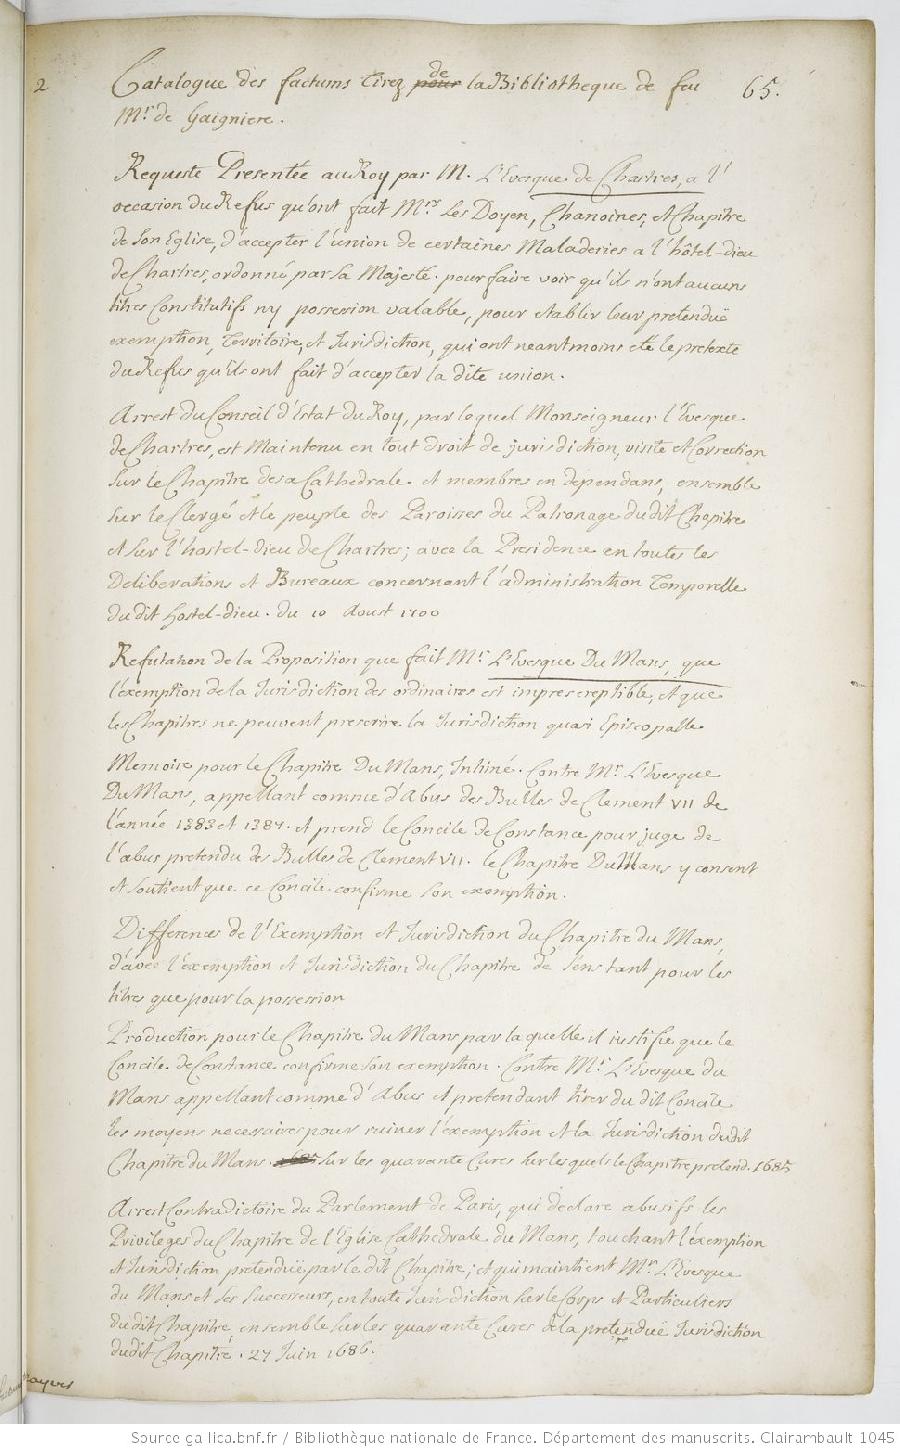 2
Catalogue des factums Tirez pour de la Bibliotheque de feu
65.
Mr. de Gaigniere.
Requiste Presentée au Roy par M. L'Evesque de Chartres, a l'
occasion du Refus qu'ont fait Mrs. les Doyen, Chanoines, et Chapitre
de Son Eglise, d'accepter l'union de certaines Maladeries a l'hôtel-dieu
de Chartres, ordonné par Sa Majesté. pour faire voir qu'ils n'ont aucuns
titres Constitutifs ny possession valable, pour etablir leur pretenduë
exemption, Territoire, et Jurisdiction, qui ont neantmoins eté le pretexte
du Refus qu'ils ont fait d'accepter la dite union.
Arrest du Conseil d'Estat du Roy, par lequel Monseigneur l'Evesque
de Chartres, est Maintenu en tout droit de jurisdiction, visite et Correction
Sur le Chapitre de sa Cathedrale. et membres en dependans, ensemble
sur le Clergé et le peuple des Paroisses du Patronage du dit Chapitre
et Sur l'hostel-dieu de Chartres; avec la Presidence en toutes les
Deliberations et Bureaux concernant l'administration Temporelle
du dit Hostel-dieu. du 10 Aoust 1700
Refutation de la Proposition que fait Mr. L'Evesque Du Mans, que
l'exemption de la Jurisdiction des ordinaires est imprescreptible, et que
les Chapitres ne peuvent prescrire la Jurisdiction quasi Episcopalle
Memoire pour le Chapitre Du Mans, Intimé. Contre Mr. L'Evesque
Du Mans, appellant comme d'Abus des Bulles de Clement VII de
l'année 1383 et 1384. et prend le Concile de Constance pour juge de
l'abus pretendu des Bulles de Clement VII. le Chapitre Du Mans y consent
et soutient que ce Concile confirme son exemption.
Differences de l'Exemption et Jurisdiction du Chapitre du Mans,
d'avec l'exemption et Jurisdiction du Chapitre de Sens tant pour les
titres que pour la possession
Production pour le Chapitre du Mans par laquelle il justifie que le
Concile de Constance confirme son exemption. Contre Mr. L'Evesque du
Mans appellant comme d'Abus et pretendant tirer du dit Concile
les moyens necessaires pour ruiner l'exemption et la Jurisdiction dudit
Chapitre du Mans. 1685 sur les quarante Cures sur lesquels le Chapitre pretend. 1685
Arrest Contradictoire du Parlement de Paris, qui declare abusifs les
Privileges du Chapitre de l'Eglise Cathedrale du Mans, touchant l'exemption
et Jurisdiction pretenduë par le dit Chapitre; et qui maintient Mr. L'Evesque
du Mans et ses Successeurs, en toute Jurisdiction sur le Corps et Particuliers
du dit Chapitre ensemble sur les quarante Cures de la pretenduë Jurisdiction
dudit Chapitre. 27 Juin 1686.
Source gallica.bnf.fr / Bibliothèque nationale de France. Département des manuscrits. Clairambault 1045